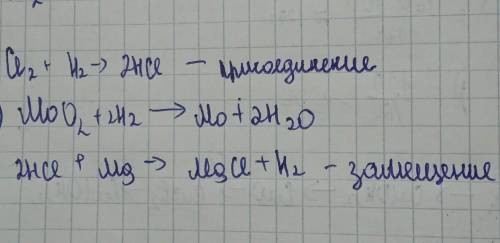 Cl₂ + H₂ → 2HCl – присоединение
) MoO₂ + 2H₂ → Mo + 2H₂O
2HCl + Mg → MgCl + H₂ – замещение